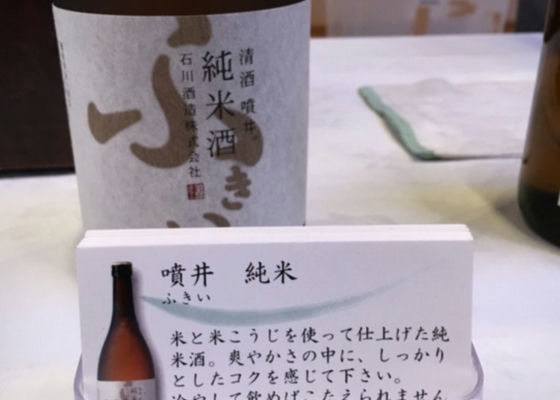 清酒 噴井
純米酒
石川酒造株式会社
ふきい
噴井 純米
ふきい
米と米こうじを使って仕上げた純
米酒。爽やかさの中に、しっかり
としたコクを感じて下さい。
冷やして飲めばこたえられません